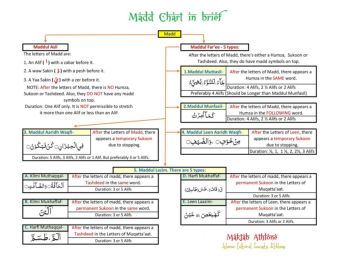 Madd Chart in brief
Madd
Maddul Asli
The letters of Madd are:
1. An Alif [ا] with a zabar before it.
2. A waw Sakin [و] with a pesh before it.
3. A Yaa Sakin [ي] with a zer before it.
NOTE: After the letters of Madd, there is NO Humza,
Sukoon or Tashdeed. Also, they DO NOT have any madd
symbols on top.
Duration: One Alif only. It is NOT permissible to stretch
it more than one Alif or less than an Alif.
Maddul Far'ee - 5 types:
After the letters of Madd, there's either a Humza, Sukoon or
Tashdeed. Also, they do have madd symbols on top.
1.Maddul Muttasil:
After the letters of Madd, there appears a
Humza in the SAME word.
Duration: 4 Alifs, 2 ½ Alifs or 2 Alifs
Preferably 4 Alifs (Should be longer than Maddul Munfasil)
2.Maddul Munfasil
After the letters of Madd, there appears a
Humza in the FOLLOWING word.
Duration: 4 Alifs, 2 ½ Alifs or 2 Alifs
3. Maddul Aaridh Waqfi
After the letters of Madd, there
appears a temporary Sukoon
due to stopping.
Duration: 5 Alifs, 3 Alifs, 2 Alifs or 1 Alif. But preferably 3 or 5 Alifs.
4. Maddul Leen Aaridh Waqfi
After the letters of Leen, there
appears a temporary Sukoon
due to stopping.
5. Maddul Lazim. There are 5 types:
A. Kilmi Muthaqqal
After the letters of madd, there appears a
Tashdeed in the same word.
Duration: 3 or 5 Alifs
B. Kilmi Mukhaffaf
After the letters of madd, there appears a
permanent Sukoon in the same word.
آلْـٰٔنَ
Duration: 3 or 5 Alifs
C. Harfi Muthaqqal
After the letters of madd, there appears a
Tashdeed in the Letters of Muqatta'aat.
الٓمّٓ. طٰسٓمّٓ
Duration: 3 or 5 Alifs
D. Harfi Mukhaffaf
After the letters of madd, there appears a
permanent Sukoon in the Letters of
Muqatta'aat.
Duration: 3 or 5 Alifs
E. Leen Laazim
After the letters of Leen, there appears a
permanent Sukoon in the Letters of
Muqatta'aat.
Duration: 3 or 5 Alifs
Maktab Athlone
Islamic Cultural Society Athlone